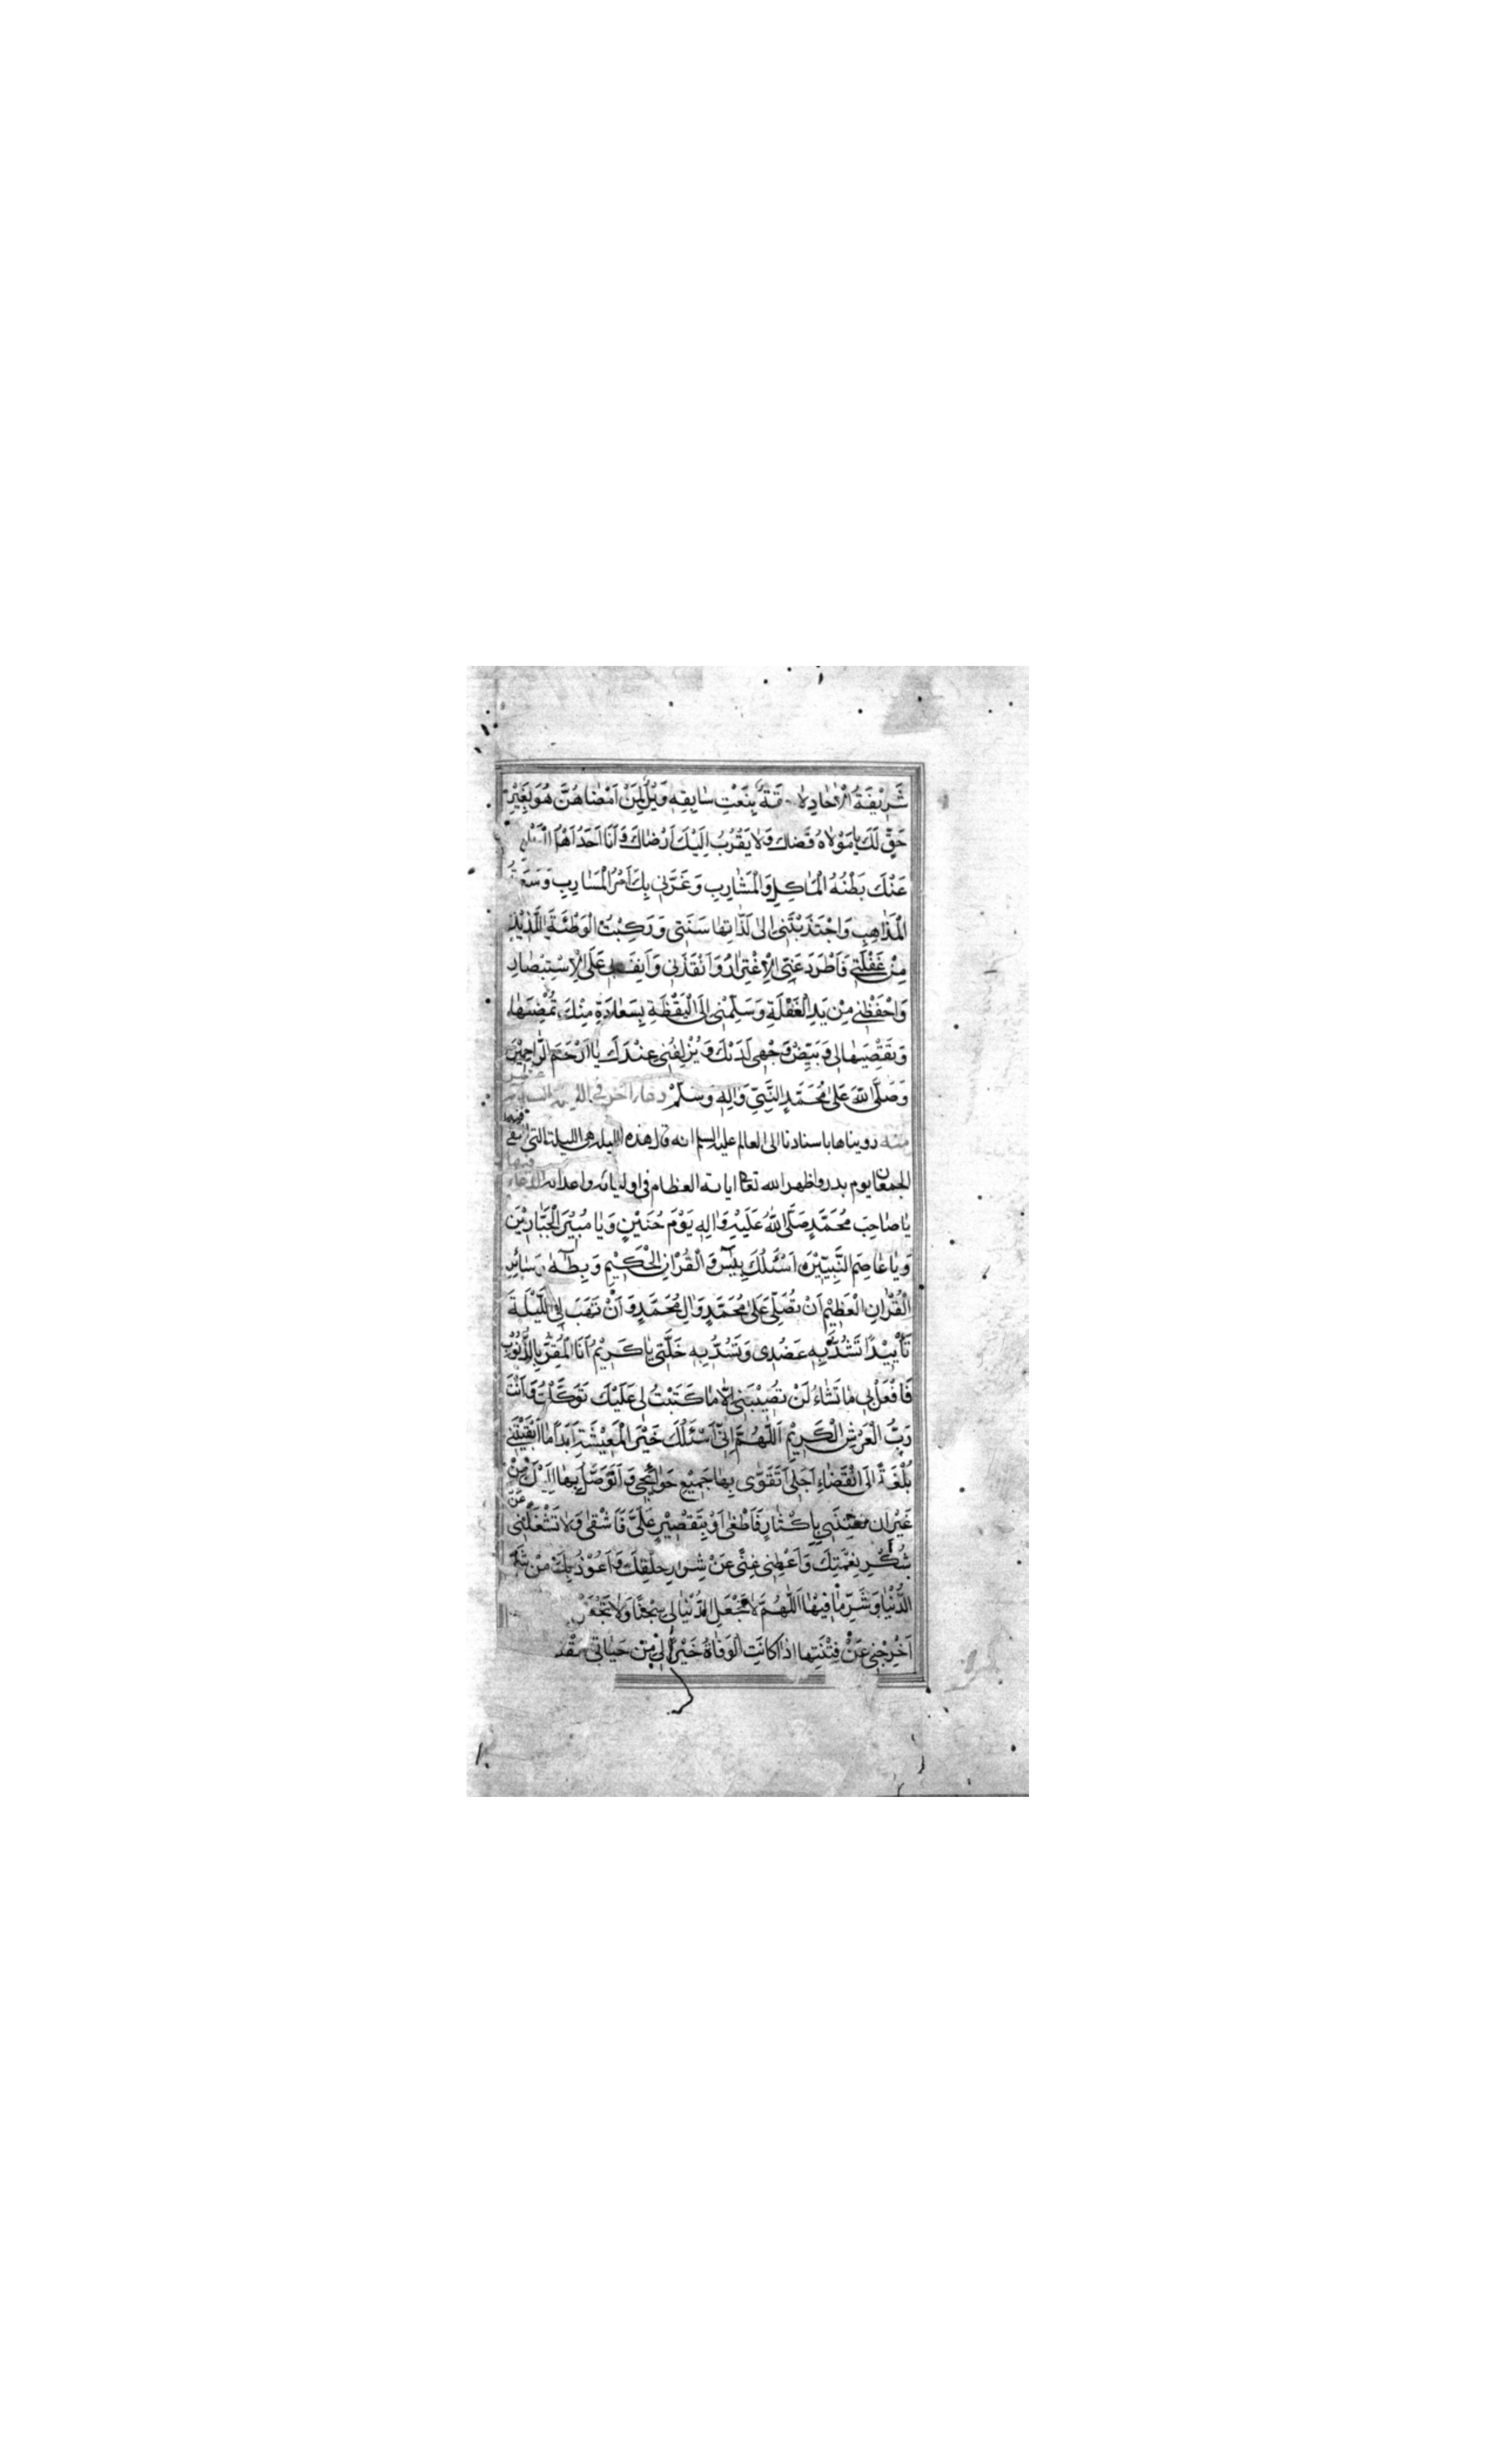 شَرِيْفَةُ الْاٰحَادِ لَا بِنَعْتِ سَابِقِهِ وَيْلٌ لِمَنْ اَمْضَاهُنَّ هُوَ بِغَيْرِ
حَقٍّ لَكَ يَا مَوْلَاهُ قَضَاكَ وَلَا يَقْرُبُ اِلَيْكَ اَرْضَاكَ وَ اَنَا اَحَدُ اَهْلِ
عَنْكَ بَطْنُهُ الْمَاكِلِ وَالْمَشَارِبِ وَغَرَّنِي بِكَ اَمْرُ الْمَسَارِبِ وَسَعَةُ
الْمَذَاهِبِ وَاجْتَذَبَتْنِي اِلٰى لَذَّاتِهَا سَنَتِي وَرَكِبْتُ الْوَطْئَةَ اللَّذِيْذَ
مِنْ غَفْلَتِي فَاطْرُدْ عَنِّي الْاِغْتِرَارَ وَاَنْقِذْنِي وَ عَلَى الْاِسْتِبْصَارِ
وَاحْفَظْنِي مِنْ يَدِ الْغَفْلَةِ وَسَلِّمْنِي اِلَى الْيَقْظَةِ بِسَعَادَةٍ مِنْكَ تُمْضِيهَا
وَتَقْضِيهَا لِي وَبَيِّضْ وَجْهِي لَدَيْكَ وَيُزْلِفُنِي عِنْدَكَ يَا اَرْحَمَ الرَّاحِمِيْنَ
وَصَلَّى اللّٰهُ عَلٰى مُحَمَّدٍ النَّبِيِّ وَاٰلِهٖ وَسَلَّمْ دعاء آخر في
منه رويناها باسنادنا الى العالم عليه السلم انه قال هذه الليلة هى الليلة التى التقى فيها
الجمعان يوم بدر واظهر الله تعا اياته العظام فى اوليائه واعدائه الدعاء فيها
يَا صَاحِبَ مُحَمَّدٍ صَلَّى اللّٰهُ عَلَيْهِ وَاٰلِهٖ يَوْمَ حُنَيْنٍ وَيَا مُبِيْرَ الْجَبَّارِيْنَ
وَيَا عَاصِمَ النَّبِيّيْنَ اَسْئَلُكَ بِيٰسٓ وَالْقُرْاٰنِ الْحَكِيْمِ وَبِطٰهٰ وَسَائِرِ
الْقُرْاٰنِ الْعَظِيْمِ اَنْ تُصَلِّيَ عَلٰى مُحَمَّدٍ وَاٰلِ مُحَمَّدٍ وَاَنْ تَهَبَ لِيَ اللَّيْلَةَ
تَاْيِيْدًا تَشُدُّ بِهٖ عَضُدِى وَتَسُدُّ بِهٖ خَلَّتِي يَا كَرِيْمُ اَنَا الْمُقِرُّ بِالذُّنُوْبِ
فَافْعَلْ بِي مَا تَشَاءُ لَنْ تُصِيْبَنِي اِلَّا مَا كَتَبْتُ لِي عَلَيْكَ تَوَكَّلْتُ وَاَنْتَ
رَبُّ الْعَرْشِ الْكَرِيْمِ اَللّٰهُمَّ اِنِّي اَسْئَلُكَ خَيْرَ الْمَعِيْشَةِ اَبَدًا مَا اَبْقَيْتَنِي
بُلْغَةً اِلَى انْقِضَاءِ اَجَلِي اَتَقَوّٰى بِهَا جَمِيْعِ حَوَائِجِي وَاَتَوَصَّلُ بِهَا اِلَيْكَ مِنْ
غَيْرِ ان تفتننى بِاِكْثَارٍ فَاَطْغٰى اَوْ بِتَقْصِيْرٍ عَلَيَّ فَاَشْقٰى وَلَا تَشْغَلْنِي عَنْ
شُكْرِ نِعْمَتِكَ وَاَعْطِنِي غِنًى عَنْ شِرَارِ خَلْقِكَ وَاَعُوْذُ بِكَ مِنْ شَرِّ
الدُّنْيَا وَشَرِّ مَا فِيهَا اَللّٰهُمَّ لَا تَجْعَلِ الدُّنْيَا لِي سِجْنًا وَلَا تَجْعَلْ
اَخْرِجْنِي عَنْ فِتْنَتِهَا اِذَا كَانَتِ الْوَفَاةُ خَيْرًا لِي مِنْ حَيَاتِي